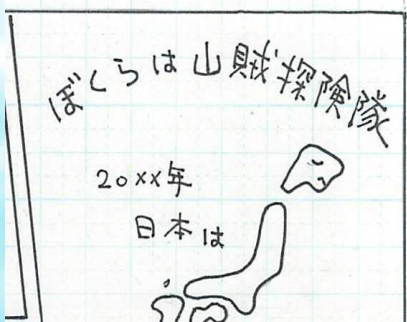 ぼくらは山賊探険隊
20xx年
日本は